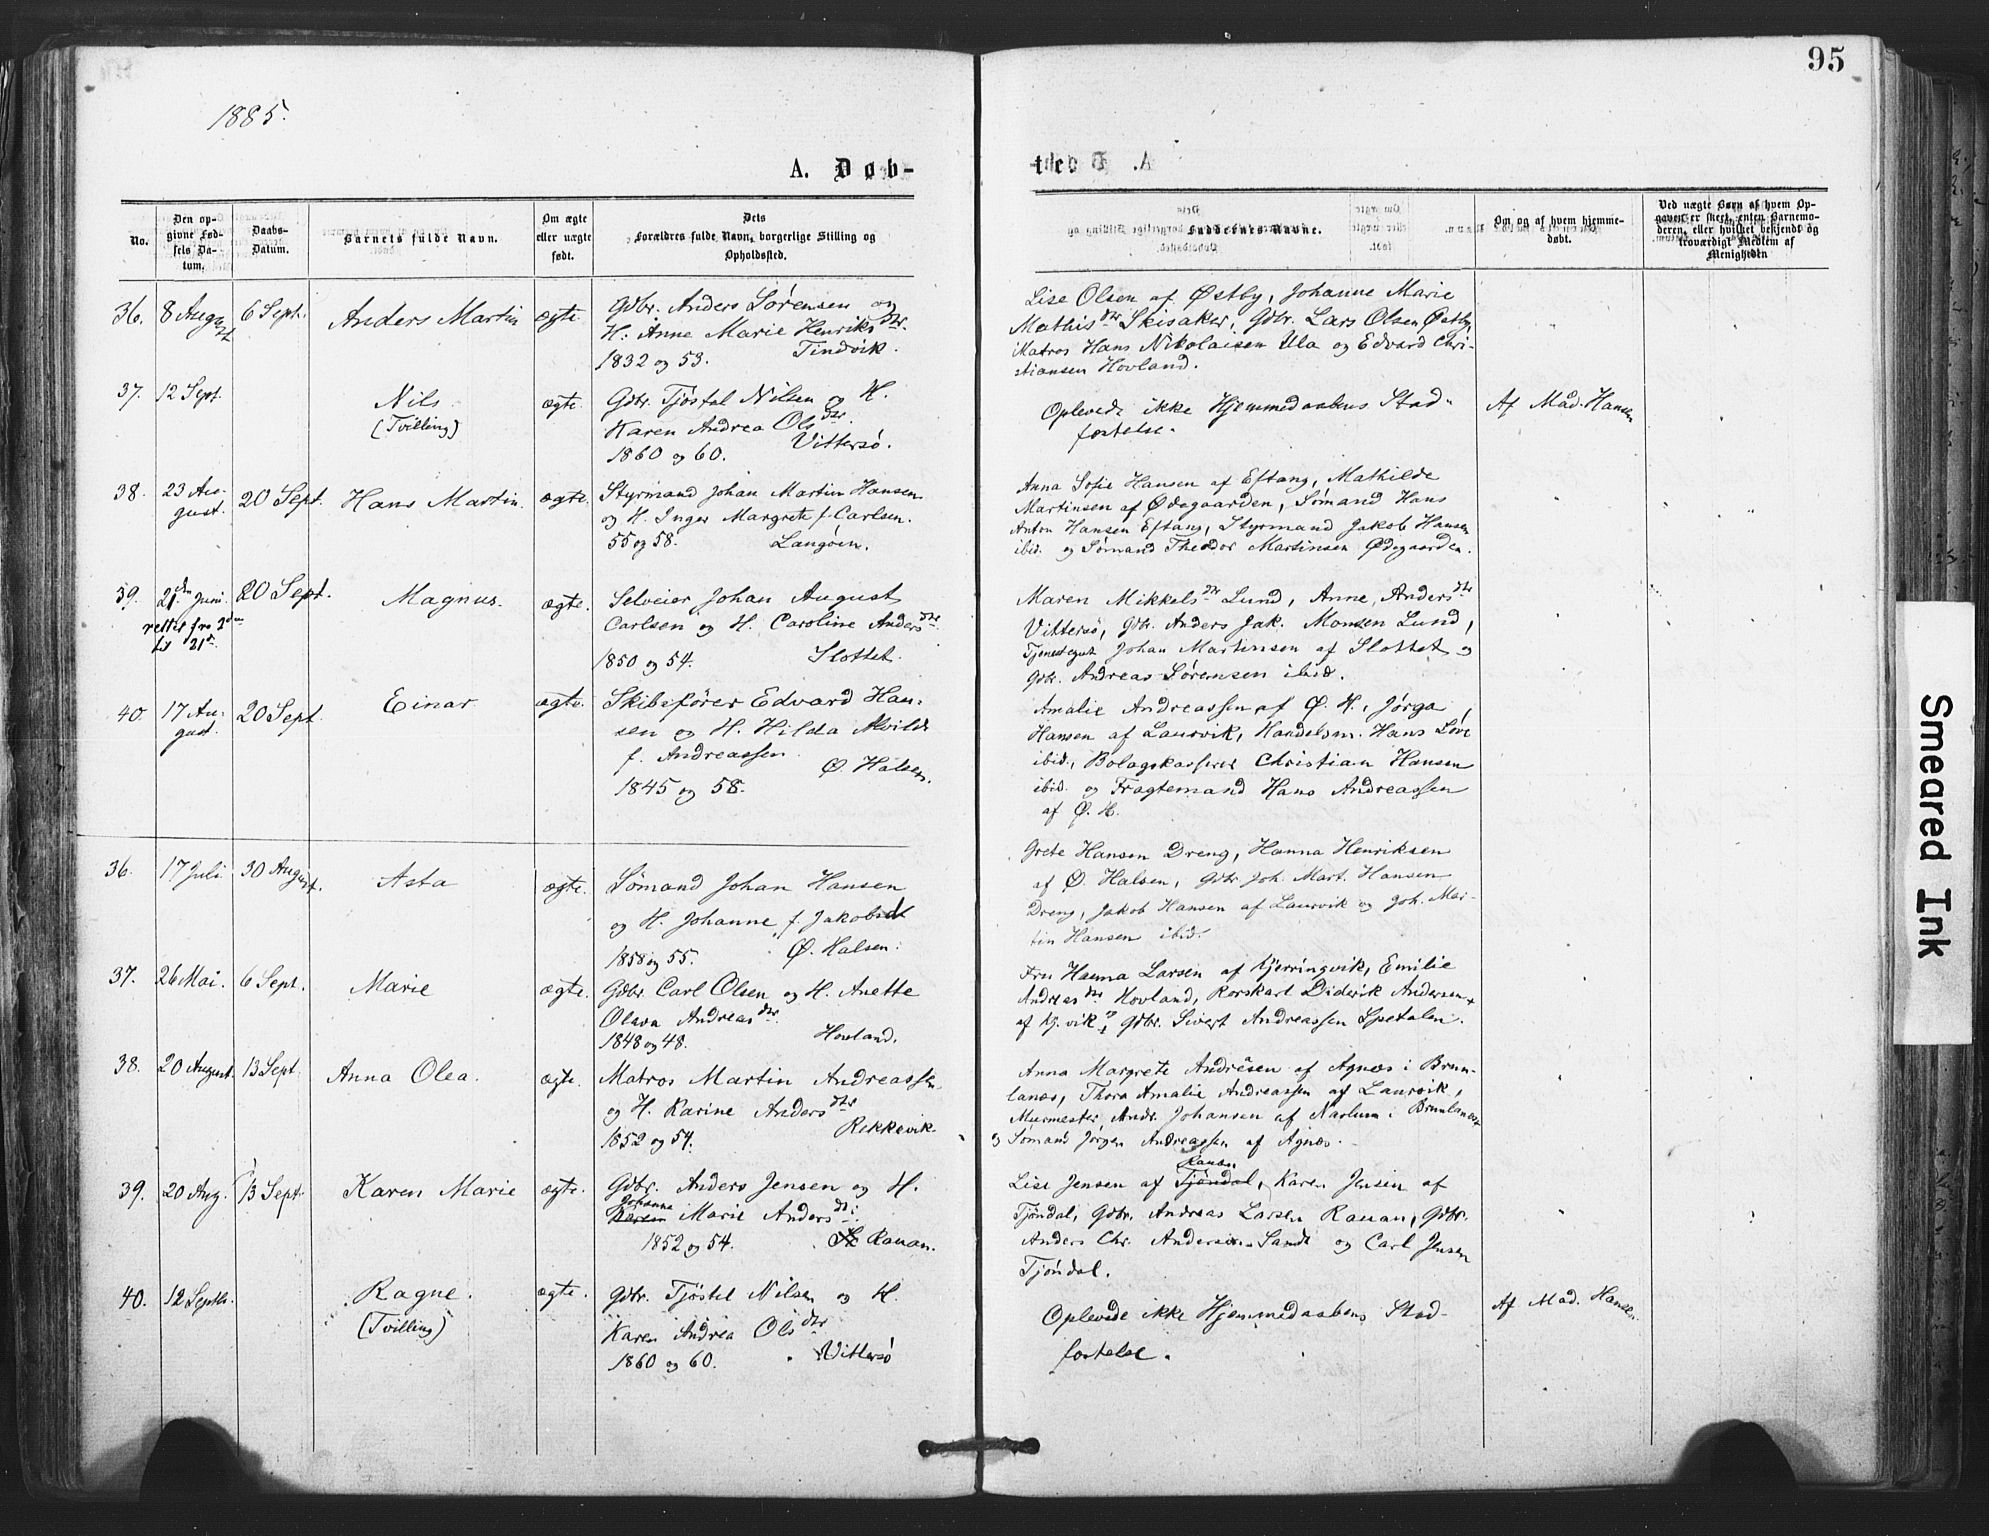 95
1885.
A. Døb-
No.
Den op-
givne Fød-
sels Da-
tum.
Daabs-
Datum.
Barnets fulde Navn.
Om ægte
eller uægte
født.
Dets
Forældres fulde Navn, borgerlige Stilling og
Opholdssted.
36. 8 August 6 Sept. Anders Martin ægte.
Gdbr. Anders Sørensen og
H: Anne Marie Henriksdtr.
1832 og 53. Tindvik.
37. 12 Sept. Nils. ægte.
(Tvilling)
Gdbr. Tjøstal Nilsen og H.
Karen Andrea Olsdtr
1860 og 60. Vittersø.
38. 23 Au-
gust. 20 Sept. Hans Martin. ægte.
Styrmand Johan Martin Hansen
og H. Inger Margrete f. Carlsen.
55 og 58. Langøen.
39. 21den Juni 20 Sept. Magnus. ægte.
rettet fra 2den
til 21de.
Selveier Johan August
Carlsen og H. Caroline Andersdtr.
1850 og 54. Slottet.
40. 17 Au-
gust. 20 Sept. Einar ægte.
Skibsfører Edvard Han-
sen og H. Hilda Alvilde
f. Andreassen.
Ø. Halsen.
1845 og 58.
36. 17 Juli 30 August. Asta ægte.
Sømand Johan Hansen
og H. Johanne f. Jakobsdt
1858 og 55. Ø. Halsen.
37. 26 Mai. 6 Sept. Marie ægte.
Gdbr. Carl Olsen og H. Anette
Olava Andreasdtr.
1848 og 48. Hovland.
38. 20 August. 13 Sept. Anna Olea. ægte.
Matros Martin Andreassen
og H. Karine Andersdtr
1852 og 54. Rekkevik.
39. 20 Aug. 13 Sept. Karen Marie ægte.
Gdbr. Anders Jensen og H.
Johanne
Marie Andersdt.
1852 og 54. Rauan.
40. 12 Septb. Ragne. ægte.
(Tvilling)
Gdbr. Tjøstel Nilsen og H.
Karen Andrea Olsdtr
1860 og 60. Vittersø
te.
Faddernes Navne.
Om og af hvem hjemme-
døbt.
Ved uægte Børn af hvem Op-
gaven er skeet, enten Barnemo-
deren, eller hvilket bekjendt og
troværdigt Medlem af
Menigheden
Lise Olsen af Østby, Johanne Marie
Mathisdtr Skisaker, Gdbr. Lars Olsen Østby,
Matros Hans Nikolaisen Ula og Edvard Chri-
stiansen Hovland.
Oplevede ikke Hjemmedaabens Stad-
fæstelse. Af Mad. Hansen
Anna Sofie Hansen af Eftang, Mathilde
Martinsen af Ødegaarden, Sømand Hans
Anton Hansen Eftang, Styrmand Jakob Hansen
ibid. og Sømand Theodor Martinsen Ødegaarden.
Maren Mikkelsdtr Lund, Anne Andersdtr
Vittersø, Gdbr. Anders Jak. Monsen Lund,
Tjenestegut Johan Martinsen af Slottet og
Gdbr. Andreas Sørensen ibid.
Amalie Andreassen af Ø. H., Jørga
Hansen af Laurvik, Handelsm. Hans Løve
ibid., Bolagskasserer Christian Hansen
ibid. og Fragtemand Hans Andreassen
af Ø. H.
Grete Hansen Dreng, Hanna Henriksen
af Ø. Halsen, Gdbr. Joh. Mart. Hansen
Dreng, Jakob Hansen af Laurvik og Joh. Mar-
tin Hansen ibid.
Fru Hanna Larsen af Kjerringvik, Emilie
Andreasdtr Hovland, Rorskarl Diderik Andersen
af Kj.vik og Gdbr. Sivert Andreassen Spetalen.
Anna Margrete Andrésen af Agnæs i Brun-
lanæs, Thora Amalie Andreassen af Laurvik,
Murmester Andr. Johansen af Narlum i Brunlanæs
og Sømand Jørgen Andreassen af Agnæs.
Rauan
Lise Jensen af Tjøndal, Karen Jensen af
Tjøndal, Gdbr. Andreas Larsen Rauan, Gdbr.
Anders Chr. Andersen Sande og Carl Jensen
Tjøndal.
Oplevede ikke Hjemmedaabens Stad-
fæstelse. Af Mad. Hansen
Smeared Ink